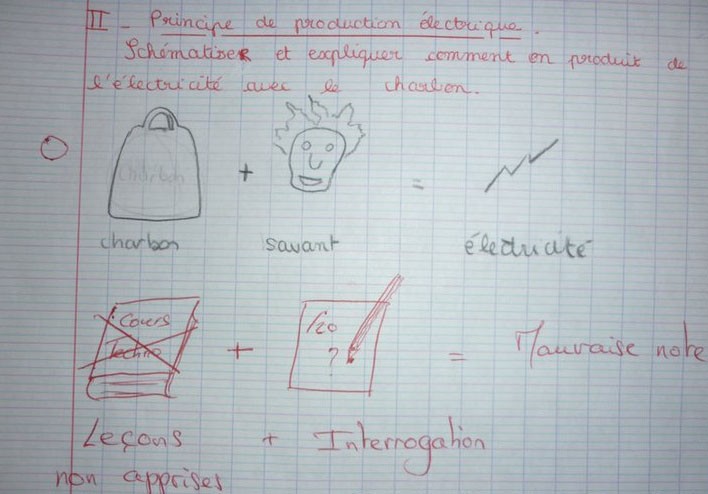 II - Principe de production électrique.
SchématiseR et expliquer comment on produit de
l'électricité avec le charbon.
charbon
+ =
charbon savant électricité
Cours
Techno
/20
?
+ = Mauvaise note
Leçons + Interrogation
non apprises